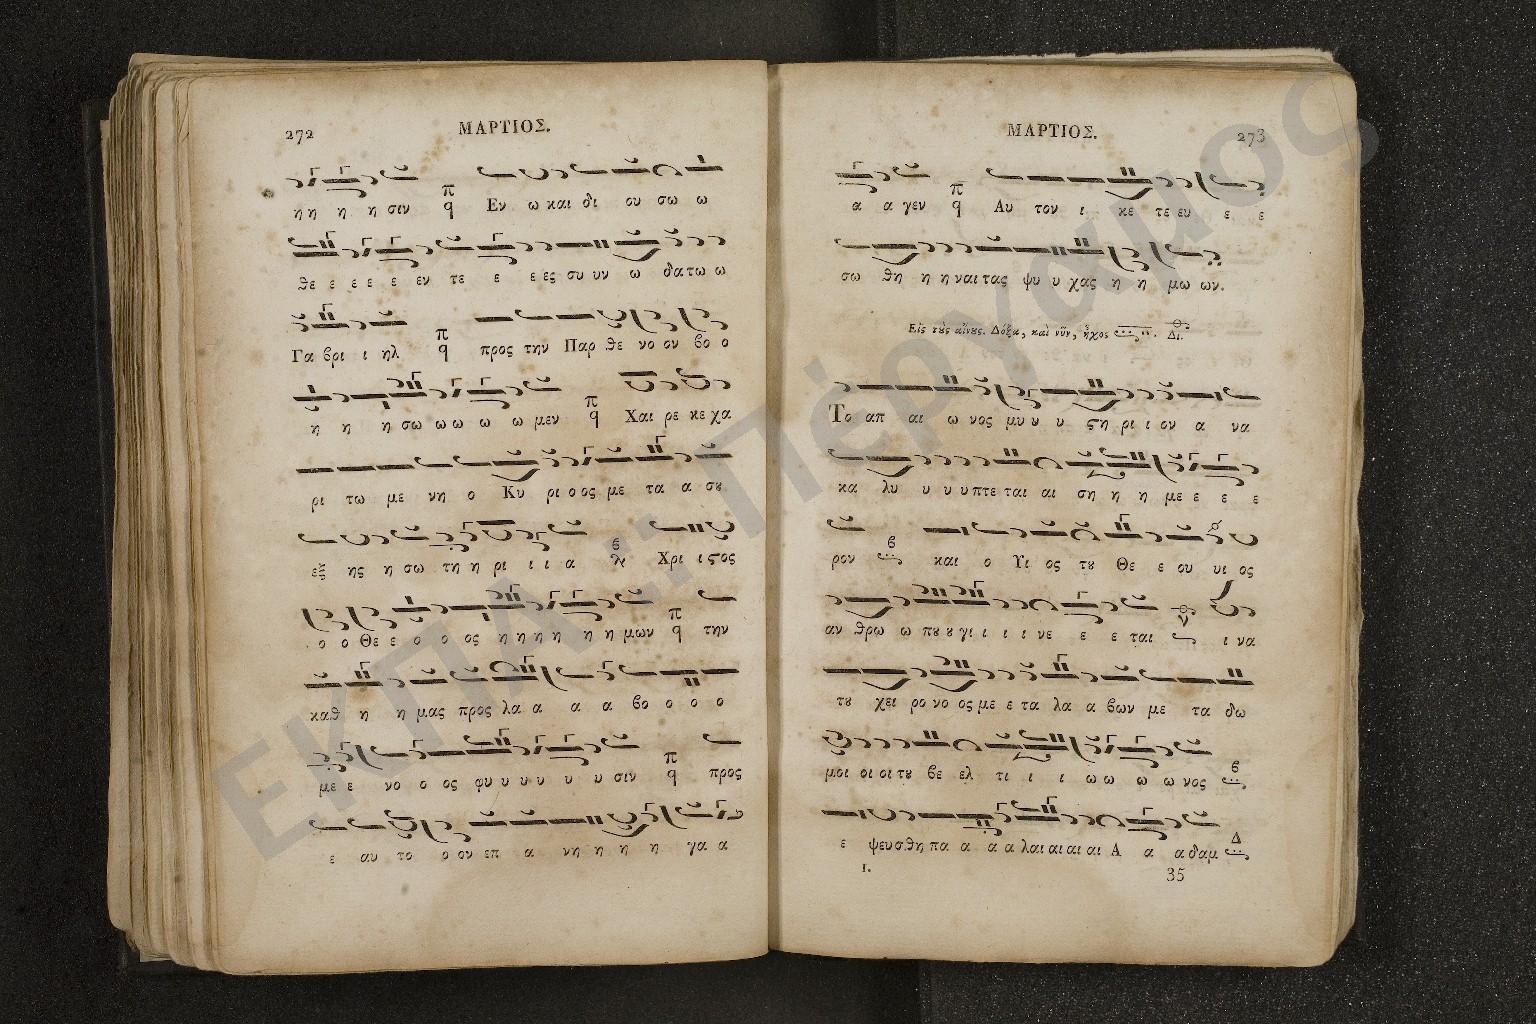 272
ΜΑΡΤΙΟΣ.
η η η η σιν π q Εν ω και δι ου σω ω
θε ε ε ε ε εν τε ε ε ες συ υν ω δα τω ω
Γα βρι ι ηλ π q προς την Παρ θε νο ον βο ο
η η η σω ω ω ω ω μεν π q Χαι ρε κε χα
ρι τω με νη ο Κυ ρι ο ος με τα α σȣ
εξ ης η σω τη η ρι ι ι α Χρι ι ϛος
ο ο Θε ε ο ο ος η η η η η η μων π q την
καθ η η μας προς λα α α α βο ο ο ο
με ε νο ο ος φυ υ υ υ υ υ σιν π q προς
ε αυ το ο ον επ α νη η η η γα α
ΜΑΡΤΙΟΣ.
273
α α γεν π q Αυ τον ι κε τε ευ ε ε
σω θη η η ναι τας ψυ υ χας η η μω ων.
Εἰς τȣ̀ς αἴνȣς. Δόξα, καὶ νῦν, ἦχος Δι.
Το απ αι ω νος μυ υ υ ϛη ρι ι ον α να
κα λυ υ υ υ πτε ται αι ση η η με ε ε ε
ρον και ο Υι ος τȣ Θε ε ου υι ος
αν θρω ω πȣ ȣ γι ι ι ι νε ε ε ται ι να
τȣ χει ρο νο ος με ε τα λα α βων με τα δω
μοι οι οι τȣ βε ελ τι ι ι ω ω ω ω νος
ε ψευσθη πα α α α λαι αι αι αι Α α α δαμ Δ
Ι. 35
ΕΚΠΑ: Πέργαμος